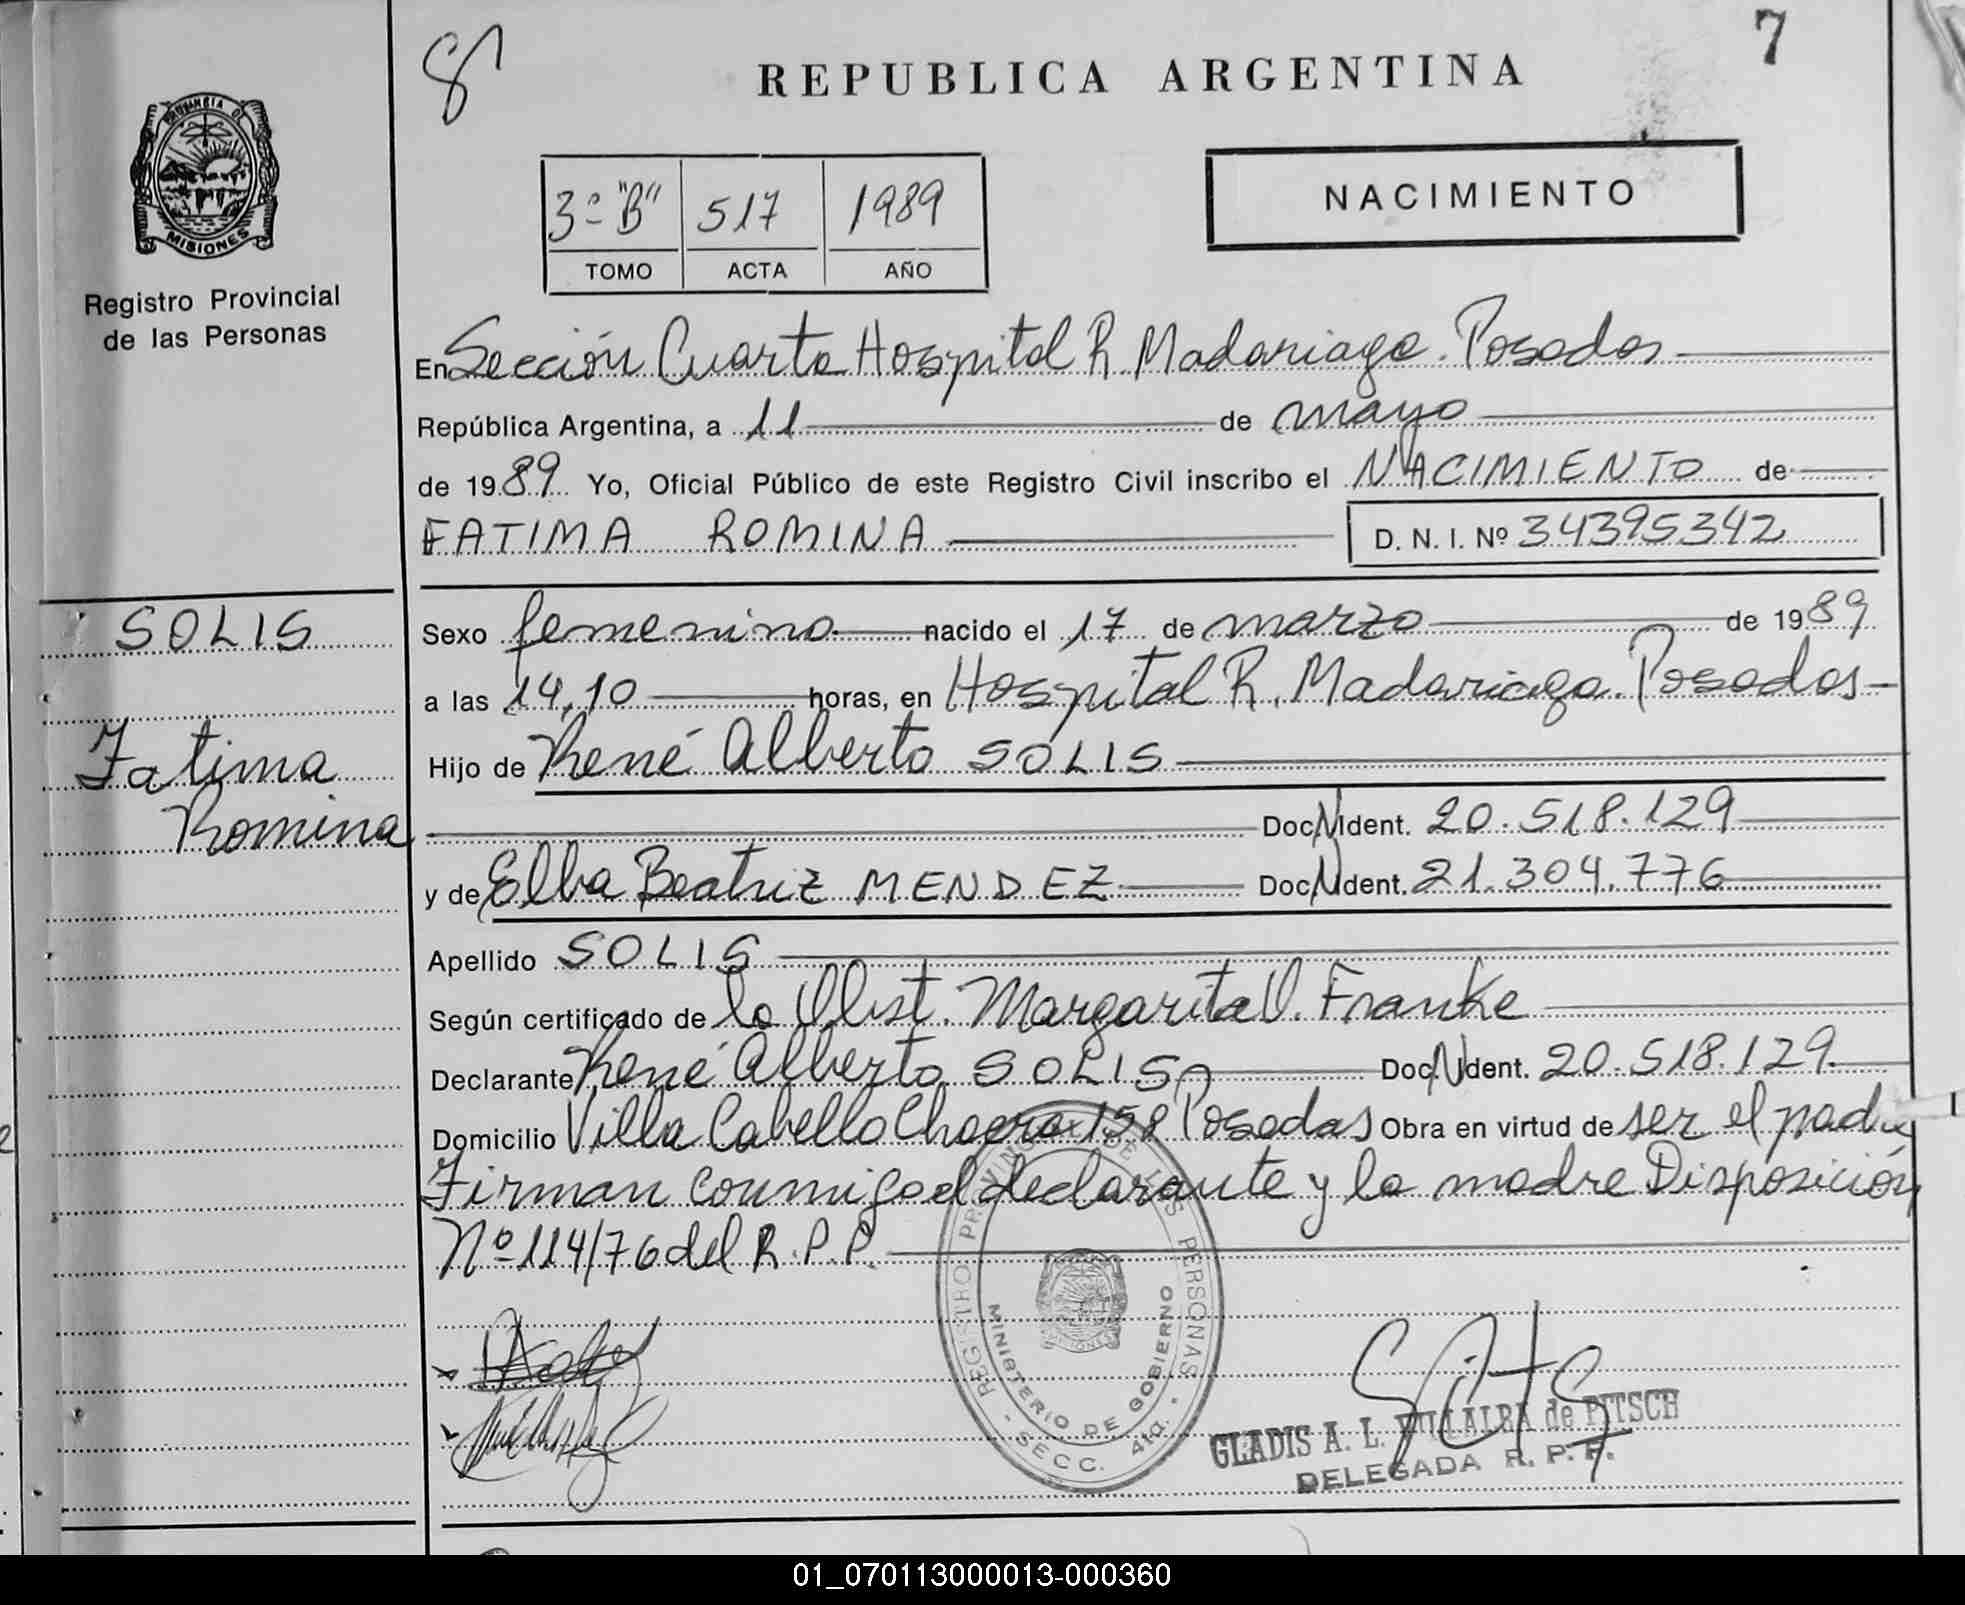 7
REPUBLICA ARGENTINA
PROVINCIA DE
MISIONES
Registro Provincial
de las Personas
3º "B" 517 1989
TOMO ACTA AÑO
NACIMIENTO
En Sección Cuarta Hospital R. Madariaga. Posadas
República Argentina, a 11 de mayo
de 1989 Yo, Oficial Público de este Registro Civil inscribo el NACIMIENTO de
FATIMA ROMINA D. N. I. Nº 34395342
SOLIS
Fatima
Romina
Sexo femenino nacido el 17 de marzo de 1989
a las 14,10 horas, en Hospital R. Madariaga. Posadas
Hijo de René Alberto SOLIS
Doc. N. Ident. 20.518.129
y de Elba Beatriz MENDEZ Doc. N. Ident. 21.304.776
Apellido SOLIS
Según certificado de la Obst. Margarita V. Franke
Declarante René Alberto SOLIS Doc. N. Ident. 20.518.129.
Domicilio Villa Cabello Chacra 158 Posadas Obra en virtud de ser el padre
Firman conmigo el declarante y la madre Disposición
Nº 114/76 del R.P.P.
REGISTRO PROVINCIAL DE LAS PERSONAS
MINISTERIO DE GOBIERNO
- SECC. 4ta. -
GLADIS A. L. VILLALBA de PITSCH
DELEGADA R. P. P.
01_070113000013-000360